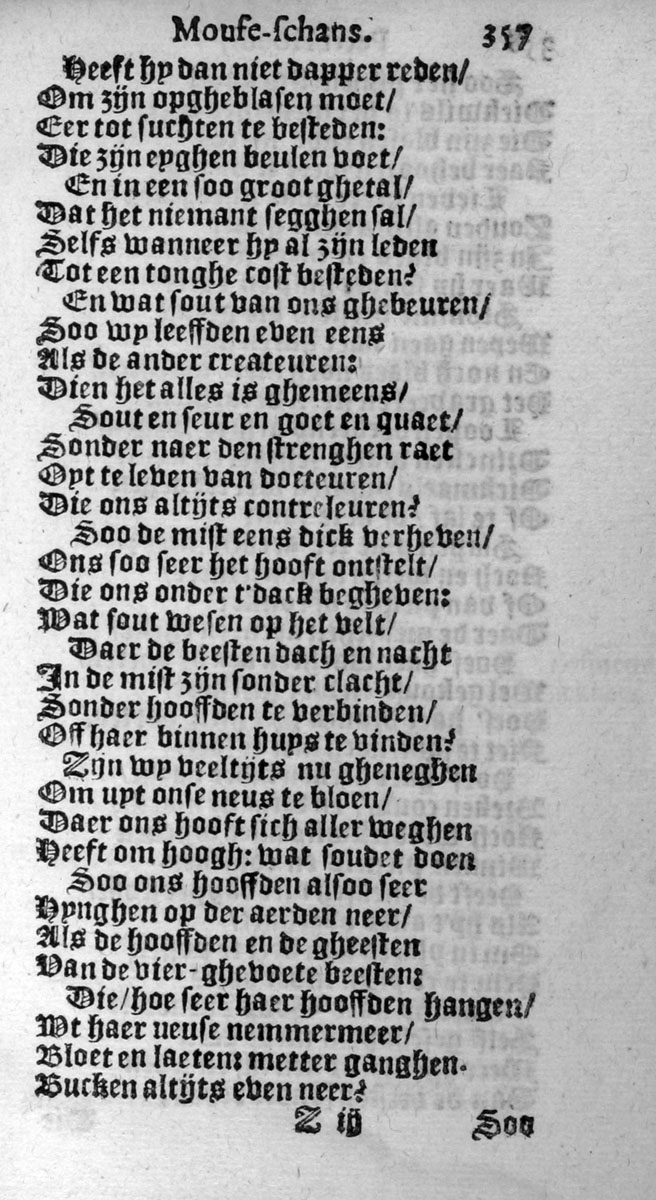 Mouse-schans. 357
Heeft hy dan niet dapper reden/
Om zijn opgheblasen moet/
Eer tot suchten te besteden:
Die zijn eyghen beulen voet/
En in een soo groot ghetal/
Dat het niemant segghen sal/
Selfs wanneer hy al zijn leden
Tot een tonghe cost besteden?
En wat sout van ons ghebeuren/
Soo wy leeffden even eens
Als de ander createuren:
Dien het alles is ghemeens/
Sout en seur en goet en quaet/
Sonder naer den strenghen raet
Opt te leven van docteuren/
Die ons altijts contreleuren?
Soo de mist eens dick verheven/
Ons soo seer het hooft ontstelt/
Die ons onder t'dack begheven:
Wat sout wesen op het velt/
Daer de beesten dach en nacht
In de mist zijn sonder clacht/
Sonder hooffden te verbinden/
Off haer binnen huys te vinden?
Zijn wy veeltijts nu gheneghen
Om uyt onse neus te bloen/
Daer ons hooft sich aller weghen
Heeft om hoogh: wat soudet doen
Soo ons hooffden alsoo seer
Hynghen op der aerden neer/
Als de hooffden en de gheesten
Van de vier-ghevoete beesten:
Die/hoe seer haer hooffden hangen/
Wt haer neuse nemmermeer/
Bloet en laeten: metter ganghen.
Bucken altijts even neer?
Z iij Soo